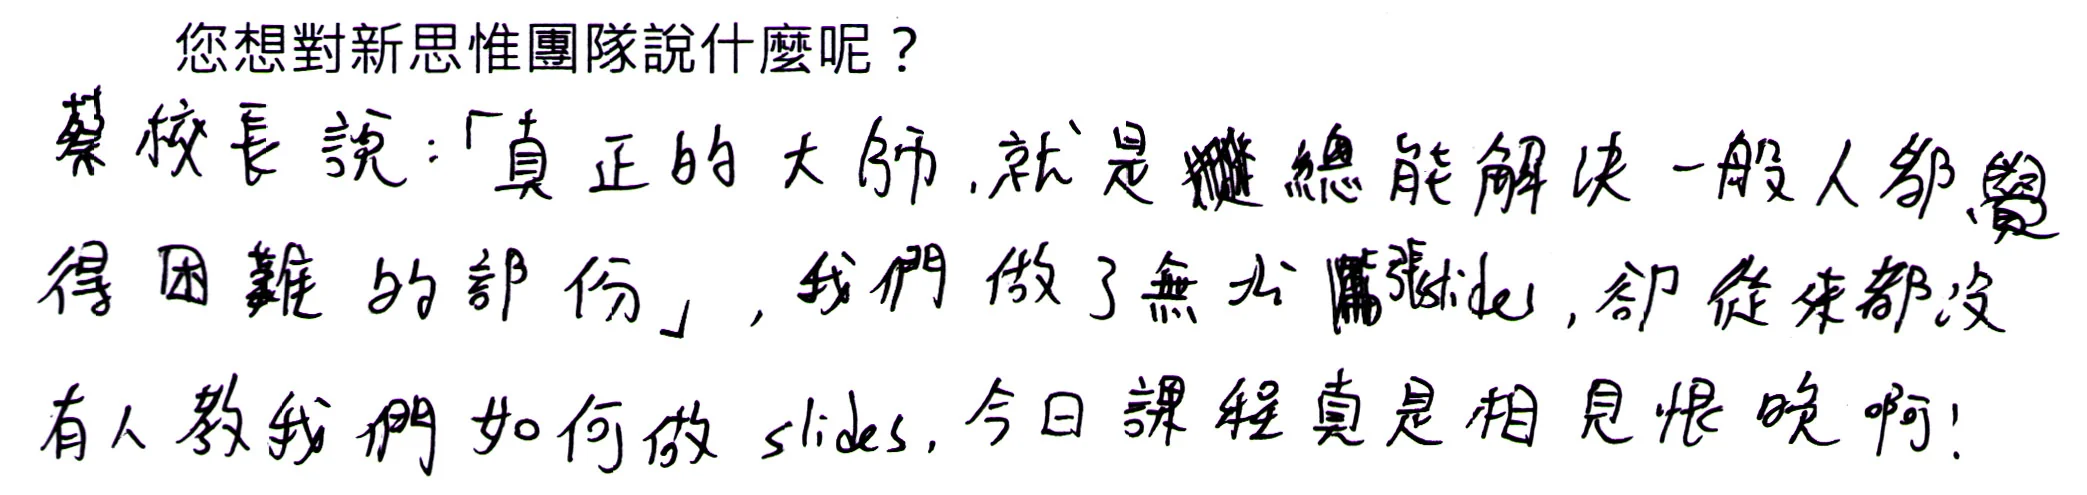 您想對新思惟團隊說什麼呢？
蔡校長說：「真正的大師，就是總能解決一般人都覺
得困難的部份」，我們做了無水張slides，卻從來都沒
有人教我們如何做slides，今日課程真是相見恨晚啊！